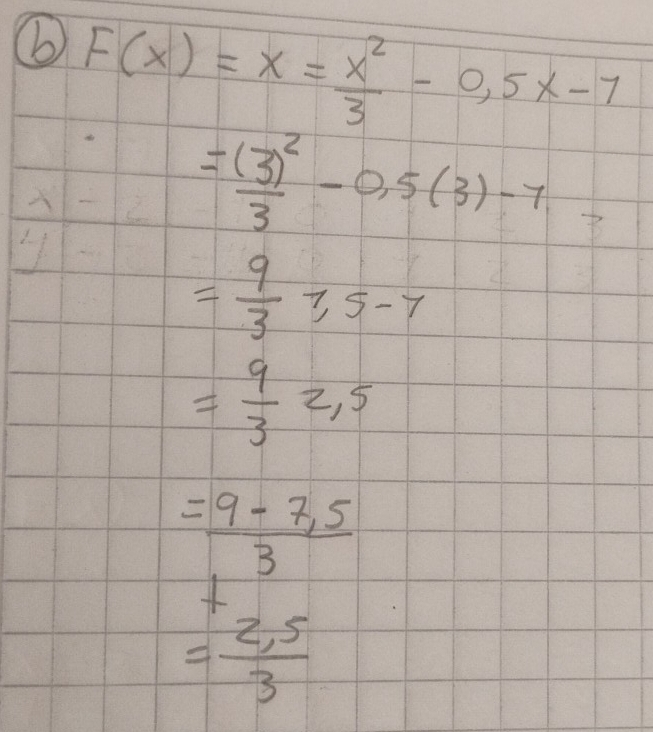 b) F(x) = x = x²/3 - 0,5x - 1
= (3)²/3 - 0,5(3) - 1
= 9/3 1,5 - 1
= 9/3 2,5
= 9 - 7,5/3
+
= 2,5/3